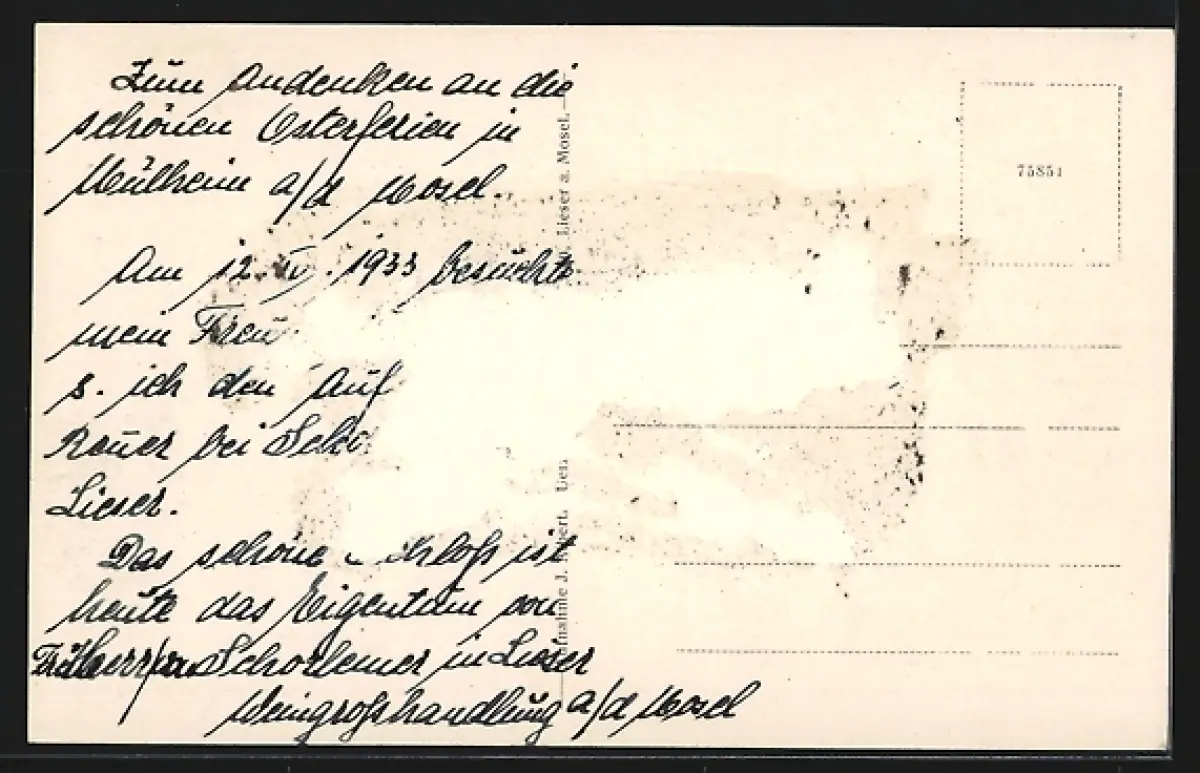 Zum Andenken an die
schönen Osterferien in
Mülheim a/d Mosel.
Am 12. IV. 1933 besuchte
mein Freu
s. ich den Auf
Reuer bei Scho
Lieser.
Das schöne Schloß ist
heute das Eigentum von
Schorlemer in Lieser
Weingroßhandlung a/d Mosel
Lieser a. Mosel.
75851